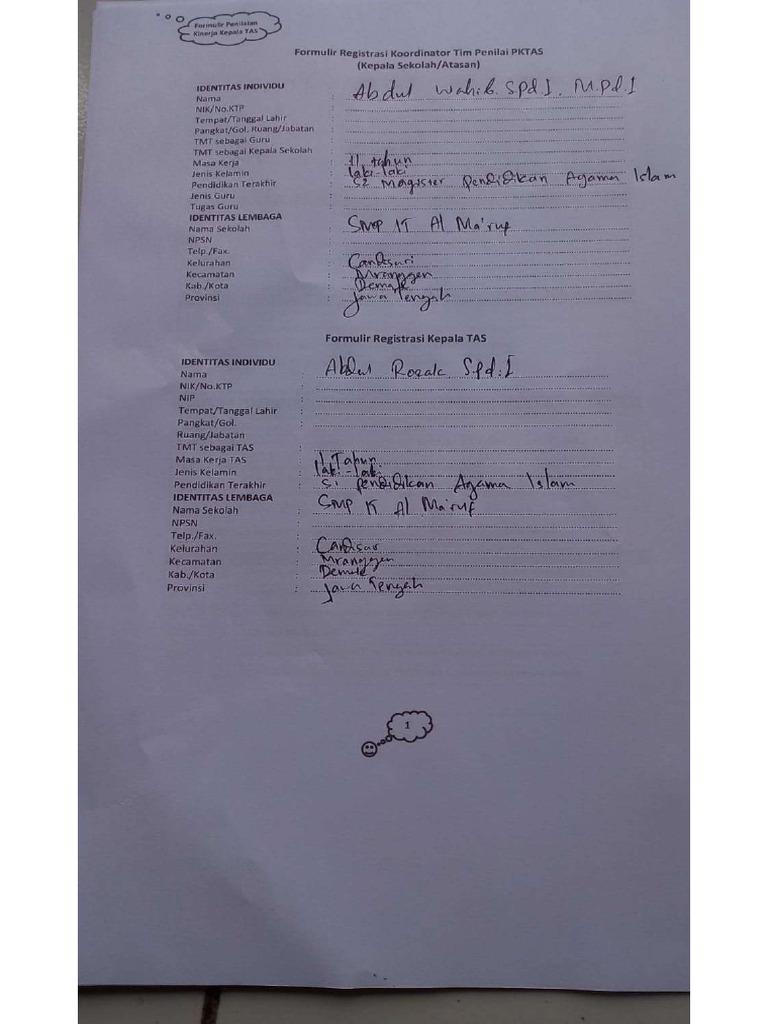 Formulir Penilaian
Kinerja Kepala TAS
Formulir Registrasi Koordinator Tim Penilai PKTAS
(Kepala Sekolah/Atasan)
IDENTITAS INDIVIDU
Nama : Abdul Wahib. Spd I. M.Pd.I
NIK/No.KTP :
Tempat/Tanggal Lahir :
Pangkat/Gol. Ruang/Jabatan :
TMT sebagai Guru :
TMT sebagai Kepala Sekolah :
Masa Kerja : 11 tahun
Jenis Kelamin : laki-laki
Pendidikan Terakhir : S2 Magister Pendidikan Agama Islam
Jenis Guru :
Tugas Guru :
IDENTITAS LEMBAGA
Nama Sekolah : SMP IT Al Ma'ruf
NPSN :
Telp./Fax. :
Kelurahan : Candisari
Kecamatan : Mranggen
Kab./Kota : Demak
Provinsi : Jawa Tengah
Formulir Registrasi Kepala TAS
IDENTITAS INDIVIDU
Nama : Abdul Rozak S.pd.I
NIK/No.KTP :
NIP :
Tempat/Tanggal Lahir :
Pangkat/Gol. :
Ruang/Jabatan
TMT sebagai TAS :
Masa Kerja TAS : Tahun
Jenis Kelamin : laki-laki
Pendidikan Terakhir : S1 pendidikan Agama Islam
IDENTITAS LEMBAGA
Nama Sekolah : SMP K Al Ma'ruf
NPSN :
Telp./Fax. :
Kelurahan : Candisar
Kecamatan : Mranggen
Kab./Kota : Demak
Provinsi : Jawa Tengah
1